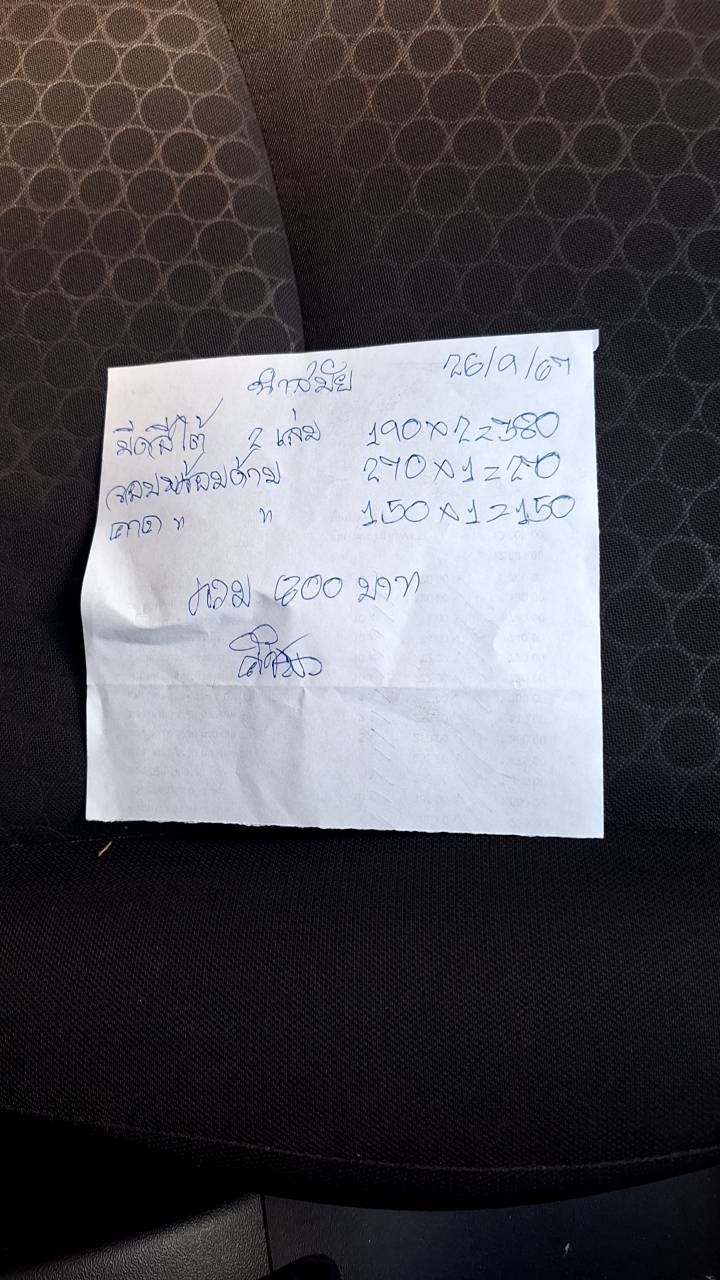 นำสมัย 26/9/67
มีดสีใต้ 2 เล่ม 190×2=380
จอบพร้อมด้าม 270×1=270
คาด " " 150×1=150
รวม 800 บาท